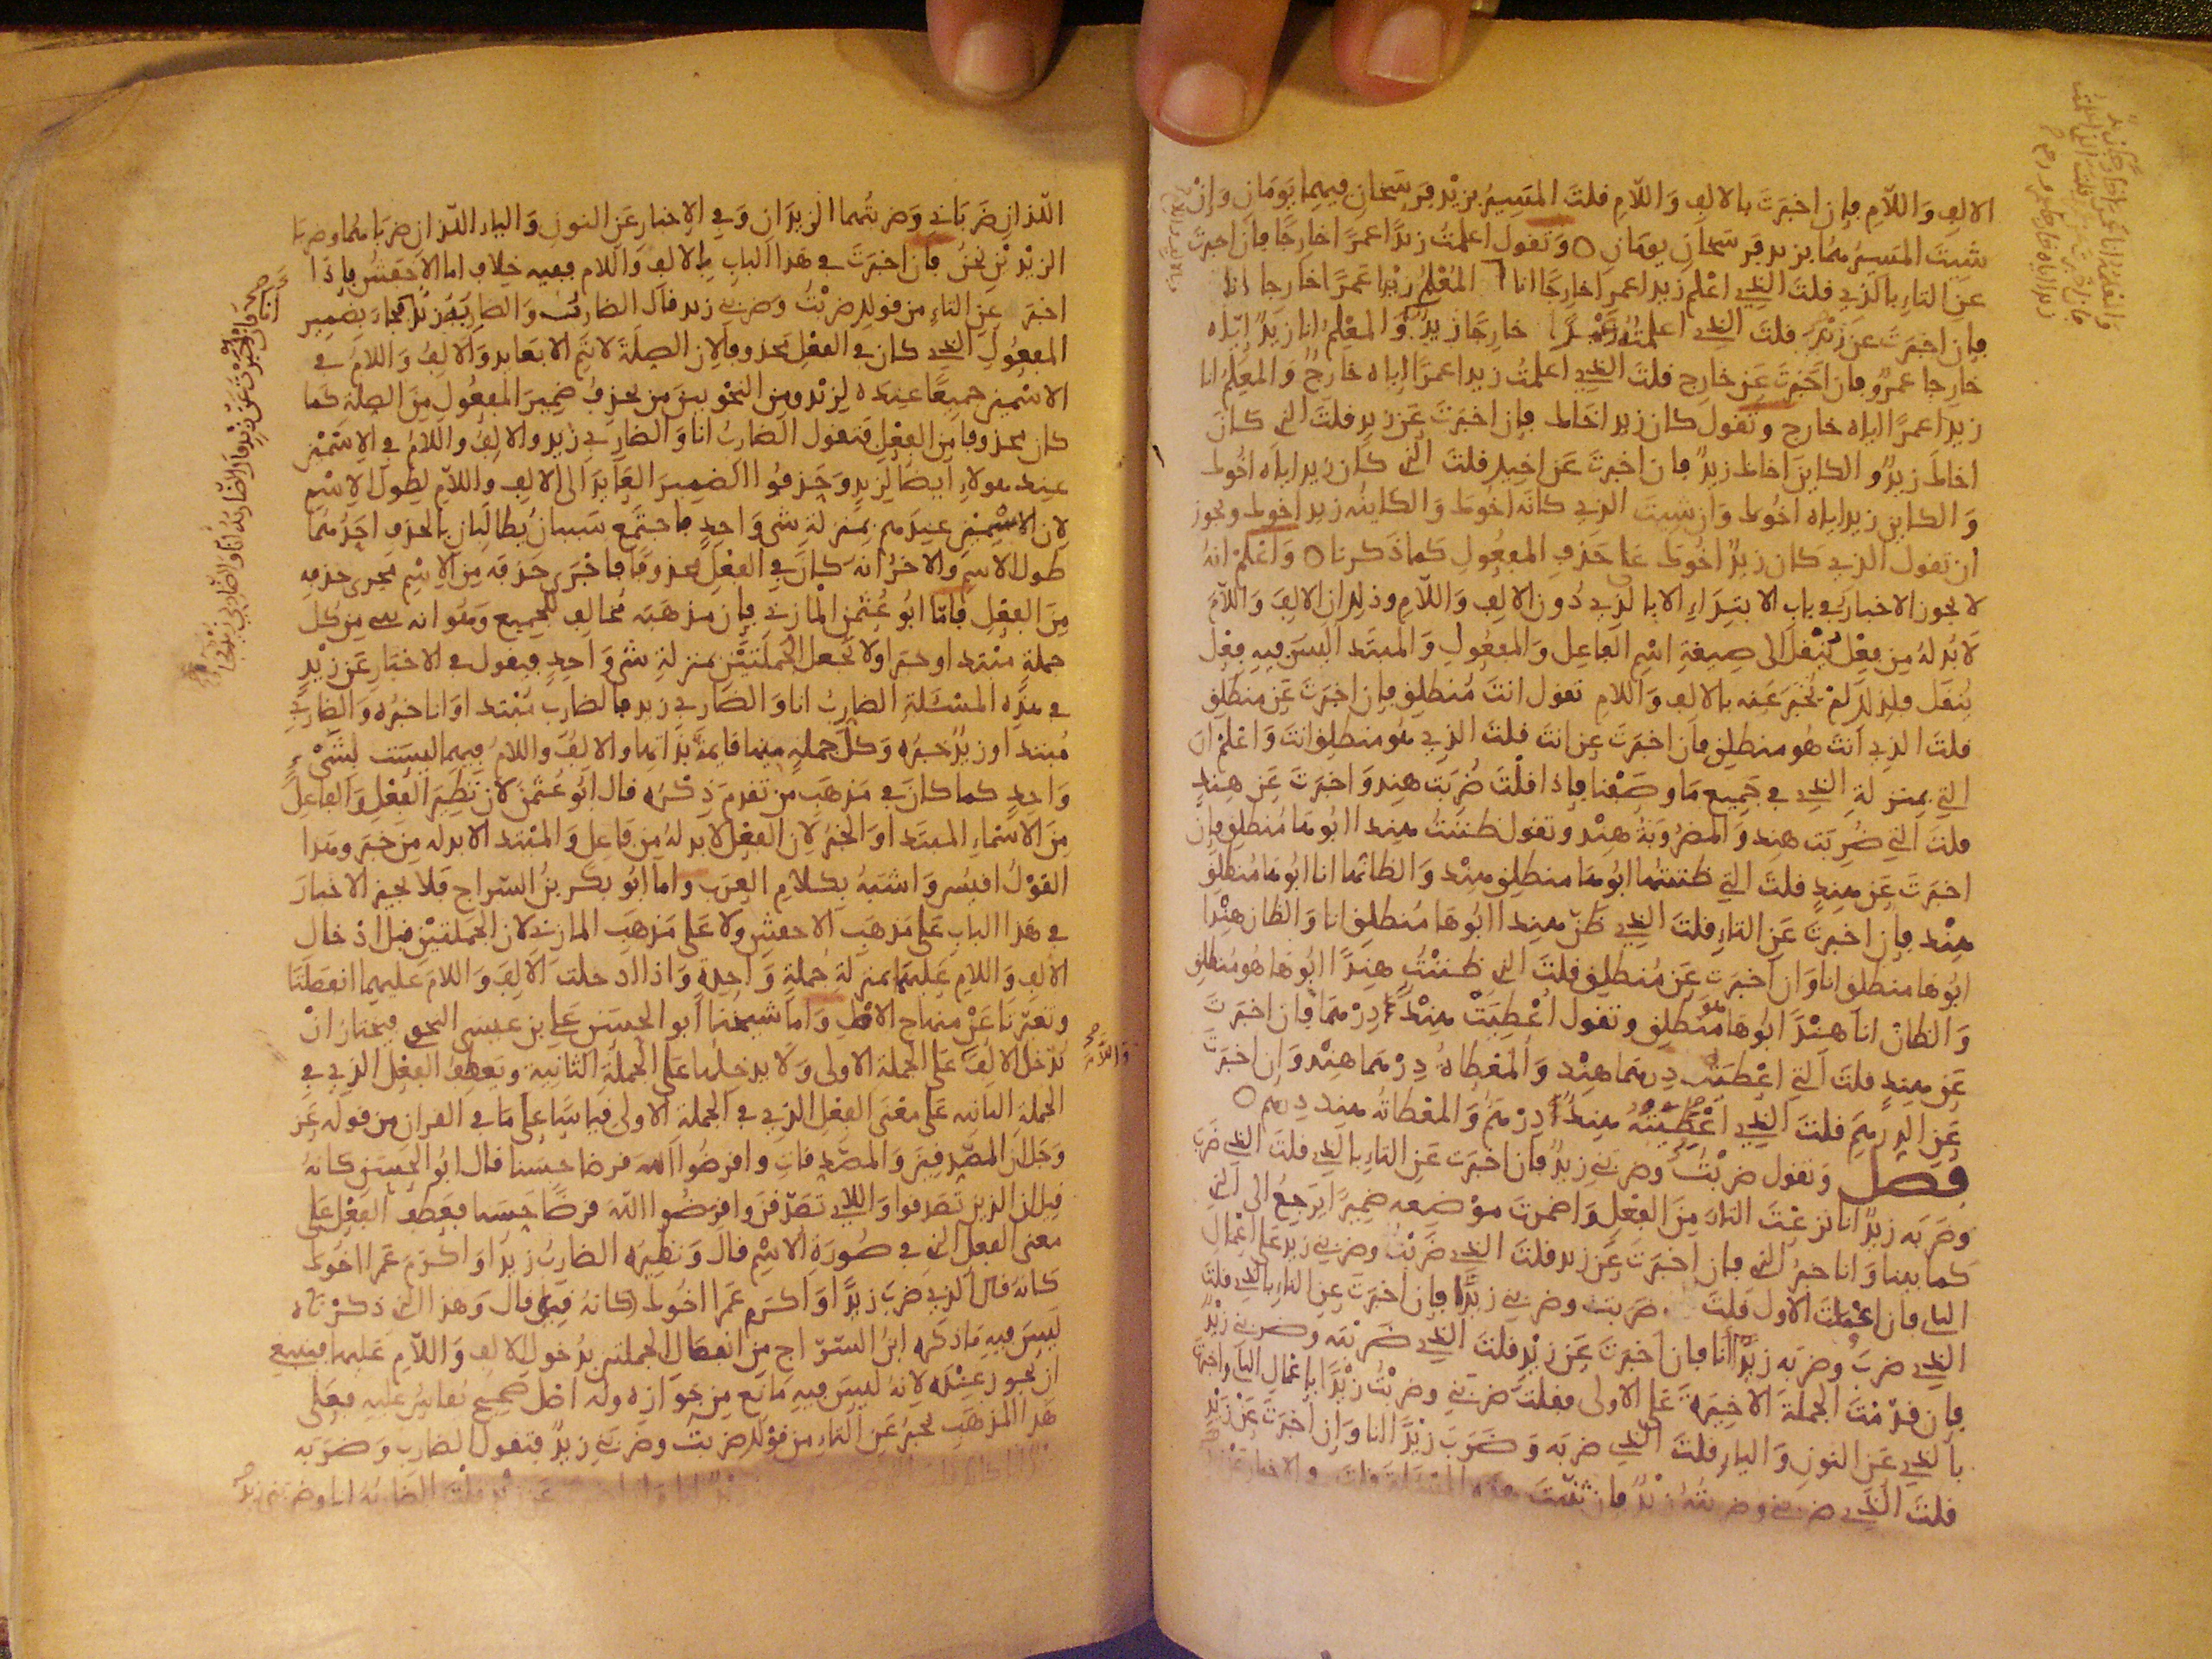 الالف واللام فإن اخبرت بالالف واللام قلت المسير بزيد فرسخان فيهما يومان وإن
شيت المسير بهما بزيد فرسخان يومان ٥ وتقول اعلمت زيدا عمرا خارجا فإن اخبرت
عن التاء بالذي قلت الذي اعلم زيدا عمرا خارجا انا المعلم زيدا عمرا خارجا انا
فإن اخبرت عن زيد قلت الذي اعلمته عمرا خارجا زيد والمعلم انا زيد إياه
خارجا عمرو فإن اخبرت عن خارج قلت الذي اعلمت زيدا عمرا إياه خارج والمعلم انا
زيدا عمرا اياه خارج وتقول كان زيد اخاك فإن اخبرت عن زيد قلت الذي كان
اخاك زيد والكاين اخاك زيد فإن اخبرت عن اخيك قلت الذي كان زيد اياه اخوك
والكاين زيد اياه اخوك وان شيت الذي كانه اخوك والكاينه زيد اخوك ويجوز
ان تقول الذي كان زيد اخوك على حذف المفعول كما ذكرنا ٥ واعلم انه
لا يجوز الاخبار في باب الابتداء الا بالذي دون الالف واللام وذلك ان الالف واللام
لا بد له من فعل ينقل الى صيغة اسم الفاعل والمفعول والمبتدا ليس فيه فعل
ينقل فلذلك لم يخبر عنه بالالف واللام تقول انت منطلق فإن اخبرت عن منطلق
قلت الذي انت هو منطلق فإن اخبرت عن انت قلت الذي هو منطلق انت واعلم ان
التي بمنزلة الذي في جميع ما وصفنا فإذا قلت ضربت هند واخبرت عن هند
قلت التي ضربت هند والمضروبة هند وتقول ظننت هندا ابوها منطلق فإن
اخبرت عن هند قلت التي ظننتها ابوها منطلق هند والظانها انا ابوها منطلق
هند فإن اخبرت عن التاء قلت الذي ظن هندا ابوها منطلق انا والظان هندا
ابوها منطلق انا وان اخبرت عن منطلق قلت الذي ظننت هندا ابوها هو منطلق
والظان انا هندا ابوها هو منطلق وتقول اعطيت هندا درهما فإن اخبرت
عن هند قلت التي اعطيت درهما هند والمعطاه درهما هند وإن اخبرت
عن الدرهم قلت الذي اعطيته هند درهم والمعطاته هند درهم ٥
فصل وتقول ضربت وضربني زيد فإن اخبرت عن التاء بالذي قلت الذي ضرب
وضربه زيد انا نزعت التاء من الفعل واضمرت موضعه ضميرا يرجع الى الذي
كما بينا وانا خبر الذي فإن اخبرت عن زيد قلت الذي ضربت وضربني زيد على اعمال
الثاني فإن اعملت الاول قلت ضربت وضربني زيدا فإن اخبرت عن التاء بالذي قلت
الذي ضرب وضربه زيدا انا فإن اخبرت عن زيد قلت الذي ضربته وضربني زيد
فإن قدمت الجملة الاخيرة على الاولى فقلت ضربني وضربت زيدا بإعمال الثاني واخبرت
بالذي عن النون والياء قلت الذي ضربه وضرب زيدا انا وإن اخبرت عن زيد
قلت الذي ضربني وضربته زيد فإن ثنيت هذه المسئلة قلت والاخبار عن
اللذان ضرباني وضربتهما الزيدان وفي الإخبار عن النون والياء اللذان ضرباهما وضربا
الزيدين نحن فإن اخبرت في هذا الباب بالالف واللام ففيه خلاف اما الاخفش فإذا
اخبر عن التاء من قولك ضربت وضربني زيد قال الضارب والضاربه زيد انا فجاء بضمير
المفعول الذي كان في الفعل محذوفا لان الصلة لا تتم الا بعايد والالف واللام في
الاسمين جميعا عنده لزيد ومن النحويين من يحذف ضمير المفعول من الصلة كما
كان محذوفا من الفعل فتقول الضارب انا والضاربي زيد والالف واللام في الاسمين
عند هولاء ايضا لزيد وحذفوا الضمير العايد الى الالف واللام لطول الاسم
لان الاسمين عندهم بمنزلة شي واحد فاجتمع سببان يطالبان بالحذف احدهما
طول الاسم والاخر انه كان في الفعل محذوفا فاجرى حذفه من الاسم مجرى حذفه
من الفعل فاما ابو عثمن المازني فإن مذهبه مخالف للجميع وهو انه بنى من كل
جملة مبتدا وخبرا ولا يجعل الجملتين بمنزلة شي واحد فيقول في الاخبار عن زيد
في هذه المسئلة الضارب انا والضاربي زيد فالضارب مبتدا وانا خبره والضاربي
مبتدا وزيد خبره وكل جملة منها قايمة بذاتها والالف واللام فيهما ليست لشيء
واحد كما كان في مذهب من تقدم ذكره قال ابو عثمن لان نظير الفعل والفاعل
من الاسماء المبتدا والخبر لان الفعل لا بد له من فاعل والمبتدا لا بد له من خبر وهذا
القول اقيس واشبه بكلام العرب واما ابو بكر بن السراج فلا يجيز الاخبار
في هذا الباب على مذهب الاخفش ولا على مذهب المازني لان الجملتين قبل ادخال
الالف واللام عليهما بمنزلة جملة واحدة واذا ادخلت الالف واللام عليهما انفصلتا
وتغيرتا عن منهاج الاصل واما شيخنا ابو الحسن علي بن عيسى النحوي فيختار ان
يدخل الالف واللام على الجملة الاولى ولا يدخلها على الجملة الثانية ويعطف الفعل الذي في
الجملة الثانية على معنى الفعل الذي في الجملة الاولى قياسا على ما في القران من قوله عز
وجل ان المصدقين والمصدقات واقرضوا الله قرضا حسنا قال ابو الحسن كانه
قيل ان الذين تصدقوا واللاتي تصدقن واقرضوا الله قرضا حسنا فعطف الفعل على
معنى الفعل الذي في صورة الاسم قال ونظيره الضارب زيدا واكرم عمرا اخوك
كانه قال الذي ضرب زيدا واكرم عمرا اخوك كانه قيل قال وهذا الذي ذكرناه
ليس فيه ما ذكره ابن السراج من انفصال الجملتين بدخول الالف واللام عليهما فينبغي
ان يجوز عنده لانه ليس فيه مانع من جوازه وله اصل صحيح يقاس عليه فعلى
هذا المذهب يخبر عن التاء من قولك ضربت وضربني زيد فتقول الضارب وضربه
زيد انا وان اخبرت عن زيد قلت الضاربه انا وضربني زيد